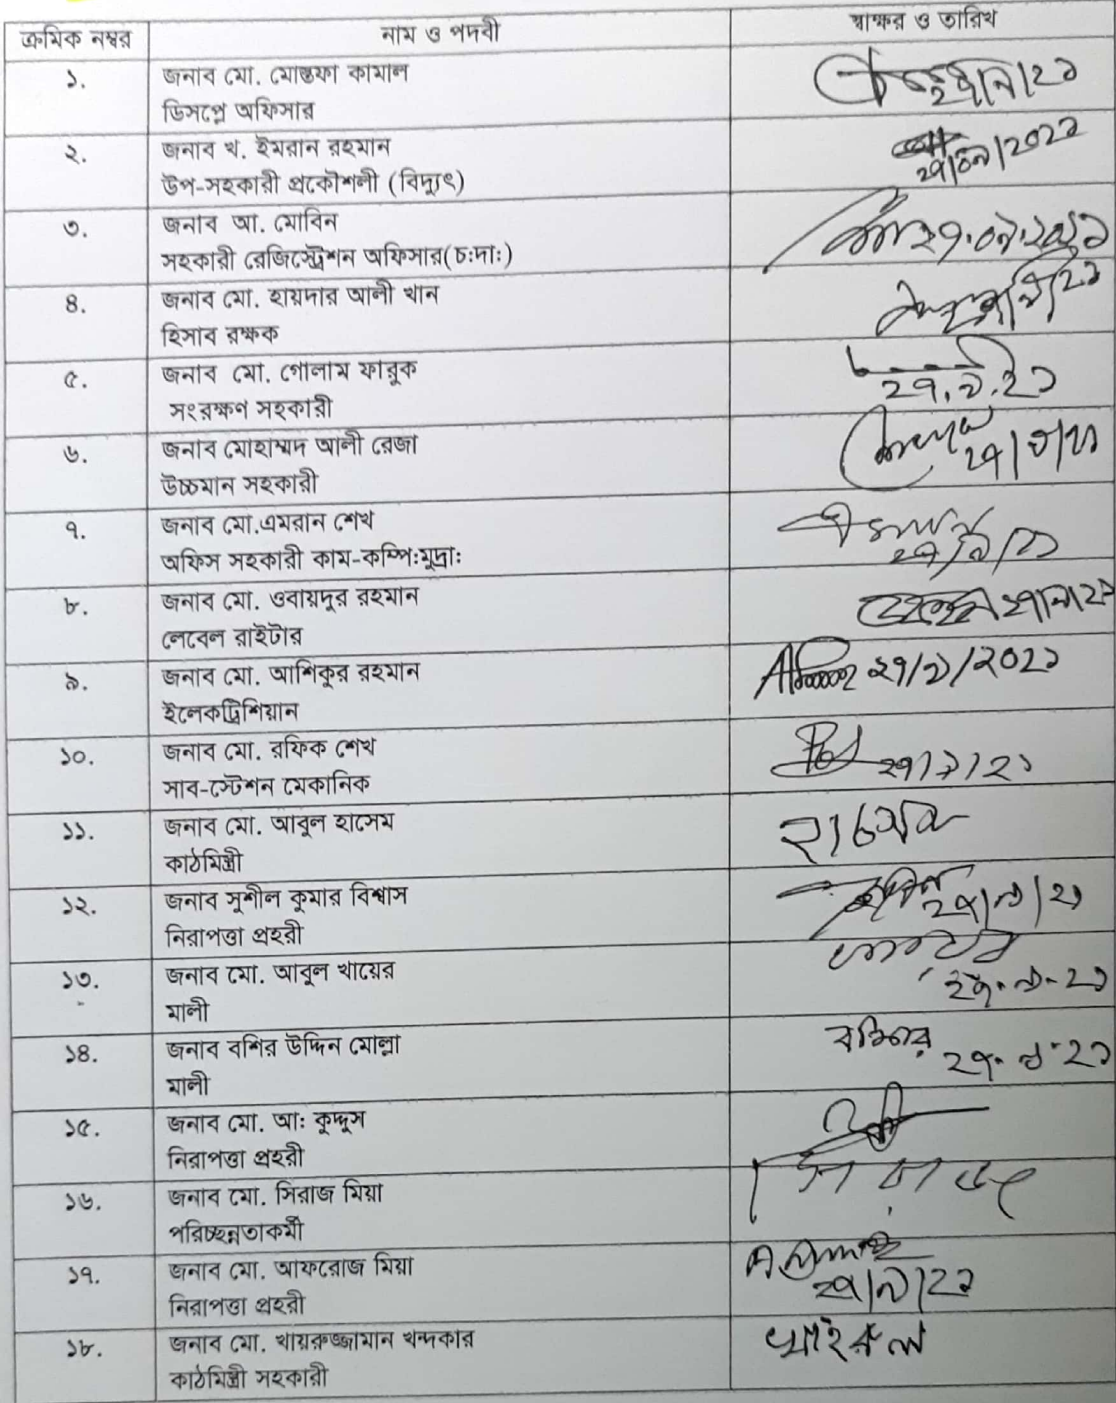 ক্রমিক নম্বর নাম ও পদবী স্বাক্ষর ও তারিখ
১. জনাব মো. মোস্তফা কামাল
ডিসপ্লে অফিসার
২. জনাব খ. ইমরান রহমান
উপ-সহকারী প্রকৌশলী (বিদ্যুৎ)
২৭/০৯/২০২১
৩. জনাব আ. মোবিন
সহকারী রেজিস্ট্রেশন অফিসার(চ:দা:)
২৭.০৯.২০২১
৪. জনাব মো. হায়দার আলী খান
হিসাব রক্ষক
৫. জনাব মো. গোলাম ফারুক
সংরক্ষণ সহকারী
২৭.৯.২১
৬. জনাব মোহাম্মদ আলী রেজা
উচ্চমান সহকারী
২৭/৯/২১
৭. জনাব মো.এমরান শেখ
অফিস সহকারী কাম-কম্পি:মুদ্রা:
২৭/৯/২১
৮. জনাব মো. ওবায়দুর রহমান
লেবেল রাইটার
৯. জনাব মো. আশিকুর রহমান ২৭/৯/২০২১
ইলেকট্রিশিয়ান
১০. জনাব মো. রফিক শেখ
সাব-স্টেশন মেকানিক
২৭/৯/২১
১১. জনাব মো. আবুল হাসেম হাসেম
কাঠমিস্ত্রী
১২. জনাব সুশীল কুমার বিশ্বাস
নিরাপত্তা প্রহরী
২৭/৯/২১
১৩. জনাব মো. আবুল খায়ের
মালী
২৭-৯-২১
১৪. জনাব বশির উদ্দিন মোল্লা বশির
মালী
২৭-৯-২১
১৫. জনাব মো. আ: কুদ্দুস
নিরাপত্তা প্রহরী
১৬. জনাব মো. সিরাজ মিয়া সিরাজ
পরিচ্ছন্নতাকর্মী
১৭. জনাব মো. আফরোজ মিয়া
নিরাপত্তা প্রহরী
২৭/৯/২১
১৮. জনাব মো. খায়রুজ্জামান খন্দকার
কাঠমিস্ত্রী সহকারী